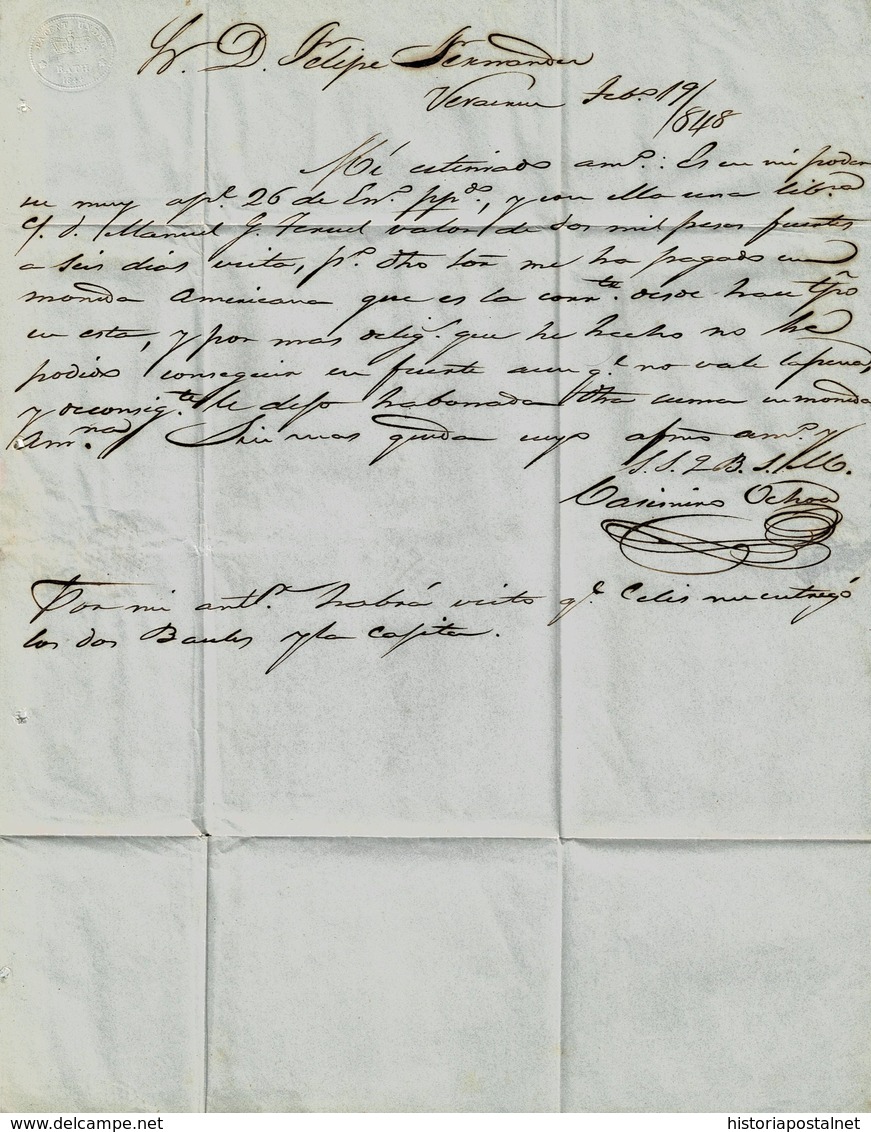 BATH
Sr. D. Felipe Fernandez
Veracruz Febo. 19/
/848
Mi estimado amo.: Es en mi poder
su muy apl. 26 de Eno. ppdo., y con ella una libra
c/. d. Manuel G. Teruel valor de dos mil pesos fuertes
a seis dias vista, po. dho Sor. me ha pagado en
moneda Americana que es la corrte. desde hace tpo
en esta, y por mas delig. que he hecho no he
podido conseguir en fuerte aun q. no vale la pena
y deconsigte. le dejo habonada dha suma en moneda
Amna. Sin mas queda suyo afmo amo. y
S. S. Q. B. S. M.
Casimiro Ochoa
Por mi antr. habrá visto q. Celis me entregó
los dos Baules y la Cajita.
www.delcampe.net
historiapostalnet